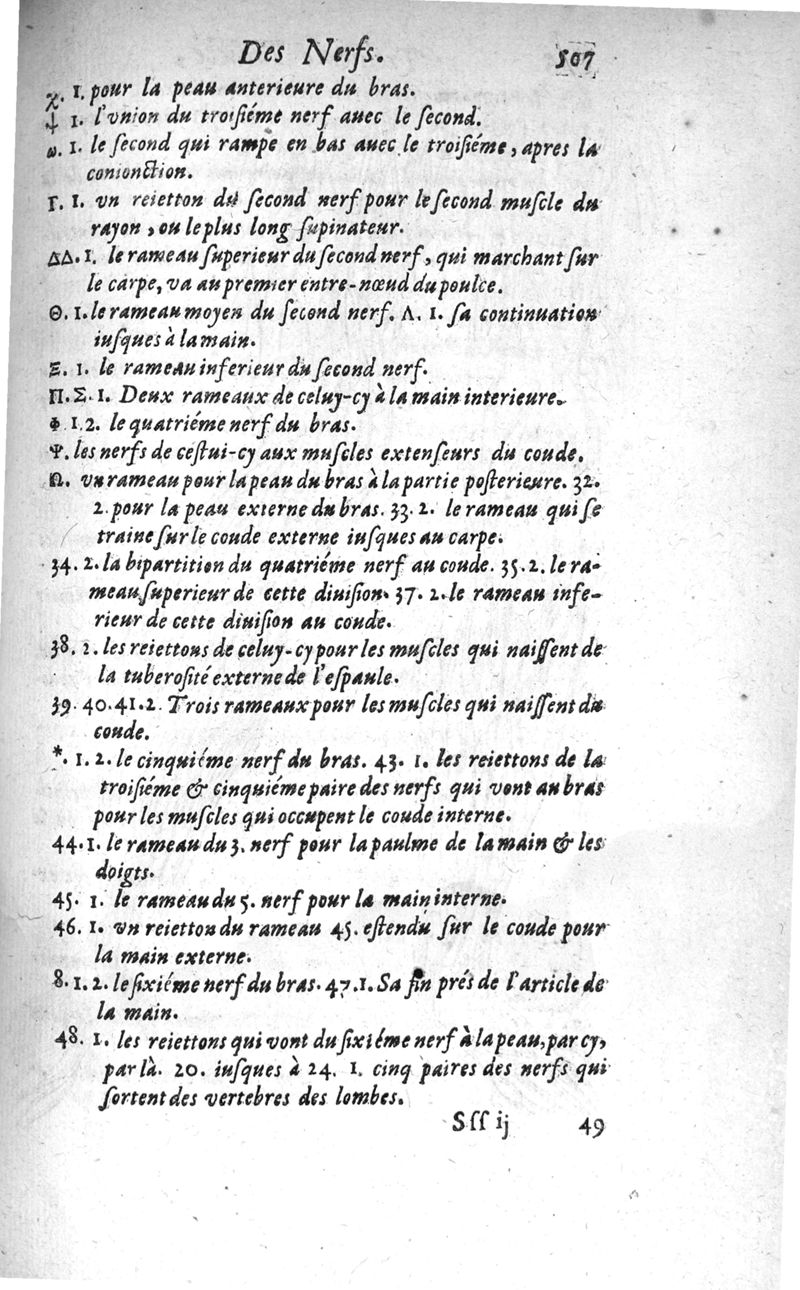 Des Nerfs. 507
χ. 1. pour la peau anterieure du bras.
ψ 1. l'vnion du troisiéme nerf auec le ſecond.
ω. 1. le ſecond qui rampe en bas auec le troiſiéme, apres la
conionction.
Γ. 1. vn reietton du ſecond nerf pour le ſecond muſcle du
rayon, ou le plus long ſupinateur.
ΔΔ. 1. le rameau ſuperieur du ſecond nerf, qui marchant ſur
le carpe, va au premier entre-nœud du poulce.
Θ. 1. le rameau moyen du ſecond nerf. Λ. 1. ſa continuation
iuſques à la main.
Ξ. 1. le rameau inferieur du ſecond nerf.
Π. Σ. 1. Deux rameaux de celuy-cy à la main interieure.
Φ 1.2. le quatriéme nerf du bras.
Ψ. les nerfs de ceſtui-cy aux muſcles extenſeurs du coude.
Ω. vn rameau pour la peau du bras à la partie poſterieure. 32.
2. pour la peau externe du bras. 33. 2. le rameau qui ſe
traine ſur le coude externe iuſques au carpe.
34. 2. la bipartition du quatriéme nerf au coude. 35. 2. le ra-
meau ſuperieur de cette diuiſion. 37. 2. le rameau infe-
rieur de cette diuiſion au coude.
38. 2. les reiettons de celuy-cy pour les muſcles qui naiſſent de
la tuberoſité externe de l'eſpaule.
39. 40. 41. 2. Trois rameaux pour les muſcles qui naiſſent du
coude.
*. 1. 2. le cinquiéme nerf du bras. 43. 1. les reiettons de la
troiſiéme & cinquiéme paire des nerfs qui vont au bras
pour les muſcles qui occupent le coude interne.
44. 1. le rameau du 3. nerf pour la paulme de la main & les
doigts.
45. 1. le rameau du 5. nerf pour la main interne.
46. 1. vn reietton du rameau 45. eſtendu ſur le coude pour
la main externe.
8. 1. 2. le ſixiéme nerf du bras. 47. 1. Sa fin prés de l'article de
la main.
48. 1. les reiettons qui vont du ſixiéme nerf à la peau, par cy,
par là. 20. iuſques à 24. 1. cinq paires des nerfs qui
ſortent des vertebres des lombes.
Sſſ ij 49